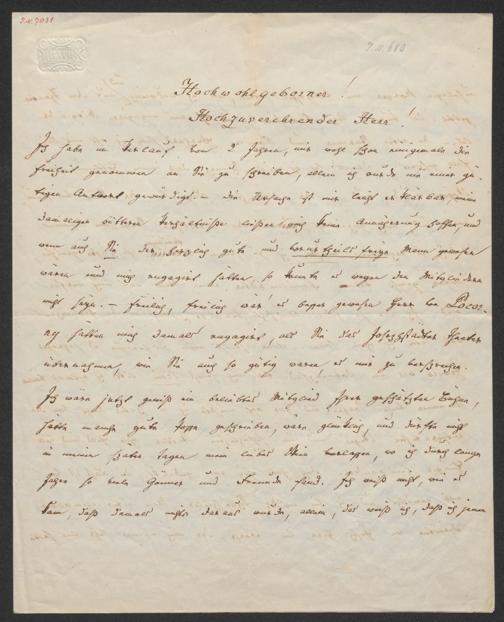 I.N. 7031
I.N. 613
Hochwohlgeborner!
Hochzuverehrender Herr!
Ich habe im Verlauf von 2 Jahren, mir wohl schon einigemale die
Freiheit genommen an Sie zu schreiben, allein ich wurde nie einer gü-
tigen Antwort gewürdigt – die Ursache ist mir leicht erklärbar, meine
damaligen düstern Verhältniße ließen mich keine Annäherung hoffen, und
wenn auch Sie der herzlich gute und vorurtheilsfreie Mann gewesen
wären und mich engagirt hätten so konnte es wegen den Mitgliedern
nicht seyn. – freilich, freilich wär' es besser gewesen Herr von Pocor-
ny hätten mich damals engagirt, als Sie das Josephstädter Theater
übernahmen, wie Sie auch so gütig waren, es mir zu versprechen.
Ich wäre jetzt gewiß ein beliebtes Mitglied Ihrer geschätzten Bühne,
hätte manche gute Posse geschrieben, wäre glücklich, und dürfte nicht
in meinen spätern Tagen mein liebes Wien verlassen, wo ich durch lange
Jahre so viele Gönner und Freunde fand. Ich weiß nicht, wie es
kam, daß damals nichts daraus wurde, allein, das weiß ich, daß ich jenen